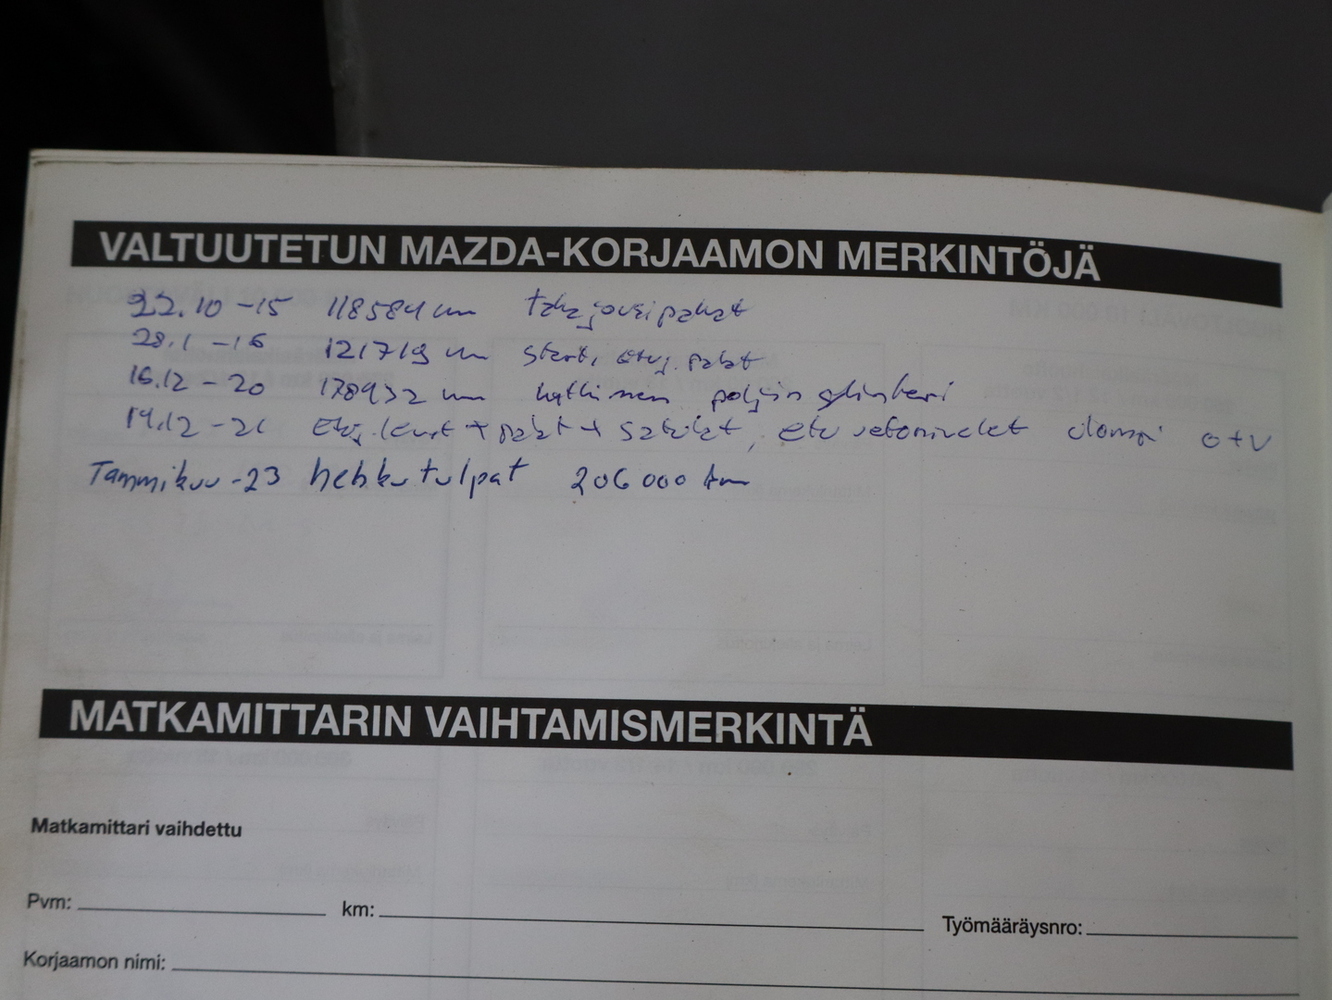 VALTUUTETUN MAZDA-KORJAAMON MERKINTÖJÄ
22.10 -15 118584 km takajousipakat
28.1 -16 121719 km start.
16.12 -20 178932 km kytkimen poljin
14.12 -21 + + etu vetonivelet o+v
Tammikuu -23 hehkutulpat 206 000 km
MATKAMITTARIN VAIHTAMISMERKINTÄ
Matkamittari vaihdettu
Pvm: km: Työmääräysnro:
Korjaamon nimi: